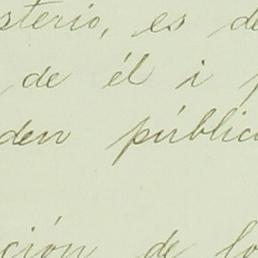 sterio, es de
de él i
den públic
ción de lo